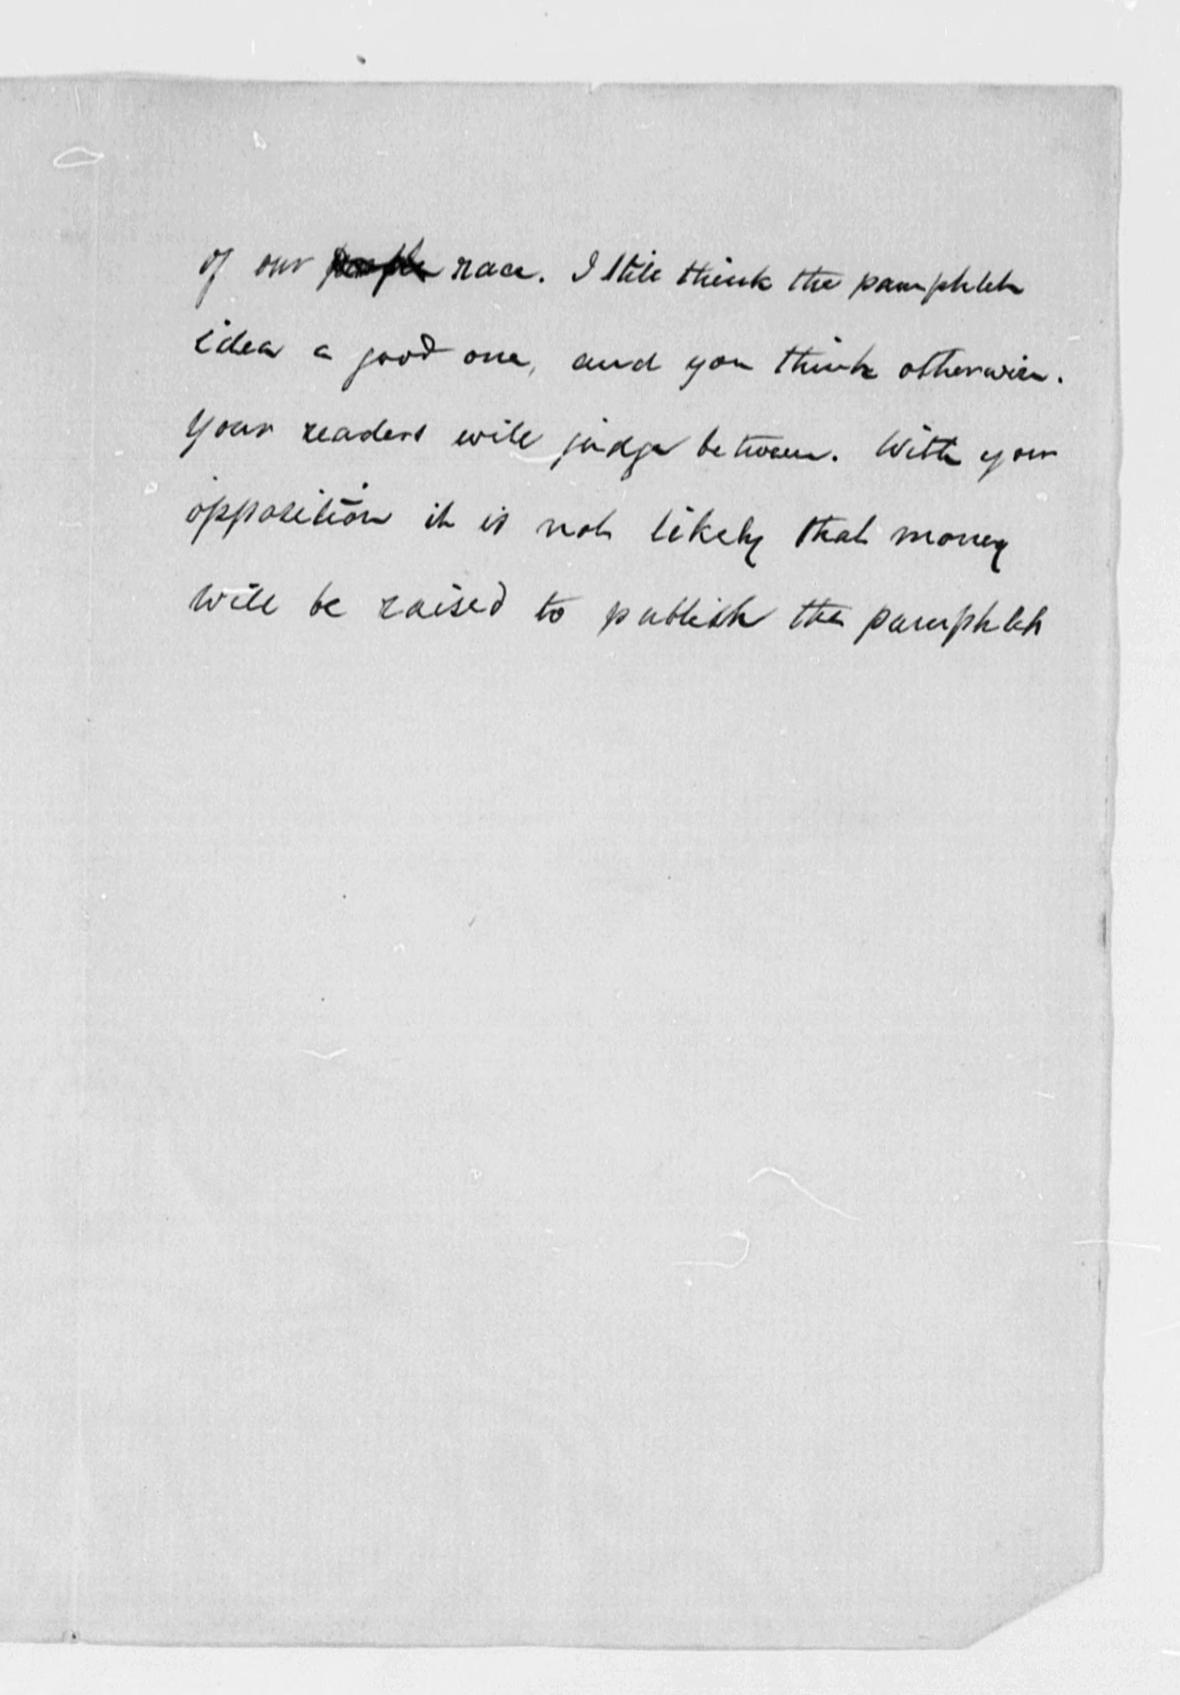 of our people race. I still think the pamphlet
idea a good one, and you think otherwise.
Your readers will judge between. With your
opposition it is not likely that money
will be raised to publish the pamphlet